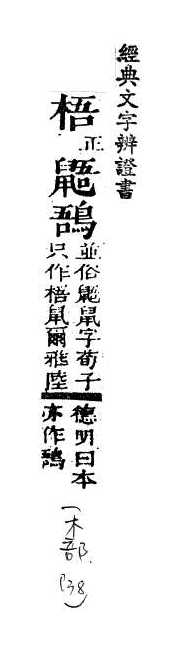 經典文字辨證書
梧正鼯
並俗鼯鼠字荀子
只作梧鼠爾雅陸
德明曰本
亦作
(木部.138)